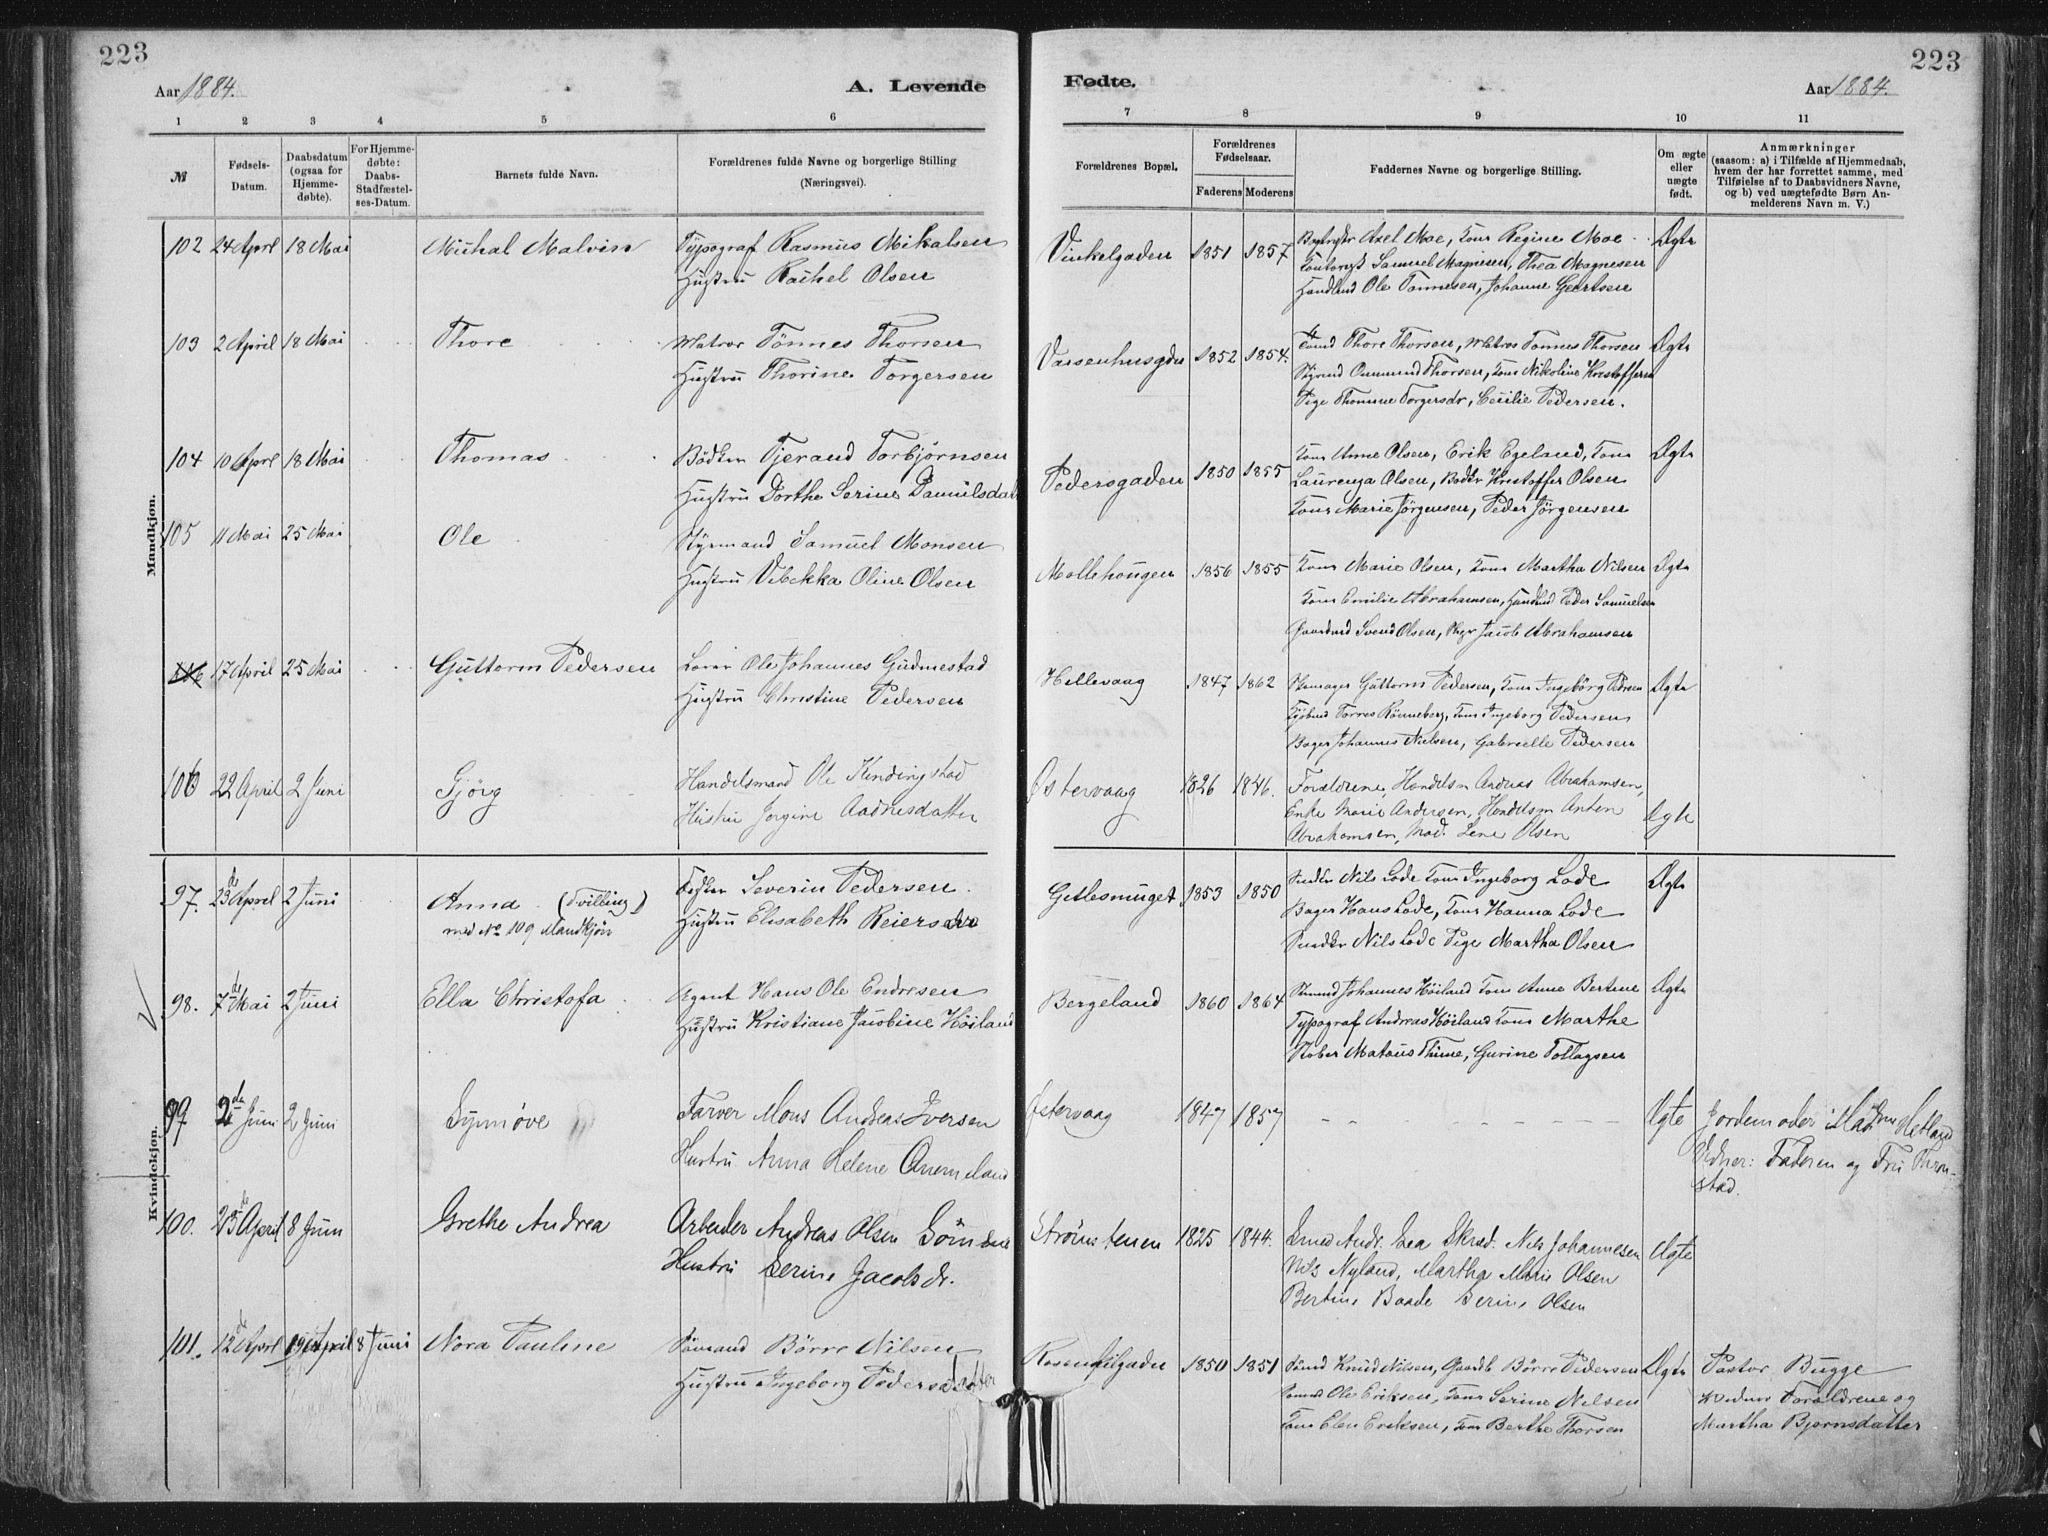 223
223
Aar 1884.
A. Levende
Fødte.
Aar 1884.
1 2 3 4 5 6 7 8 9 10 11
№
Fødsels-Datum.
Daabsdatum (ogsaa for Hjemmedøbte).
For Hjemmedøbte: Daabs-Stadfæstelses-Datum.
Barnets fulde Navn.
Forældrenes fulde Navne og borgerlige Stilling (Næringsvei).
Forældrenes Bopæl.
Forældrenes Fødselsaar.
Faderens Moderens
Faddernes Navne og borgerlige Stilling.
Om ægte eller uægte født.
Anmærkninger (saasom: a) i Tilfælde af Hjemmedaab, hvem der har forrettet samme, med Tilføielse af to Daabsvidners Navne, og b) ved uægtefødte Børn Anmelderens Navn m. V.)
Mandkjøn.
102 24 April 18 Mai Michal Malvin Typograf Rasmus Mikalsen Vinkelgaden 1851 1857 Axel Moe, Kone Regine Moe Ægte
Hustru Rachel Olsen Samuel Magnesen, Thea Magnesen
Ole Tonnesen, Johanne Geertsen
103 2 April 18 Mai Thore Matros Tönnes Thorsen Vaisenhusgdn 1852 1854. Thore Thorsen, Matros Tonnes Thorsen Ægte
Hustru Thorine Torgersen Styrmd Onmund Thorsen, Kone Nikoline Kristoffersn
Pige Thomine Torgersdr, Cecilie Pedersen.
104 10 April 18 Mai Thomas Bödker Tjerand Torbjörnsen Pedersgaden 1850 1855 Kone Anne Olsen, Erik Egeland, Kone Ægte
Hustru Dorthe Serine Laurenza Olsen, Bodkr Kristoffer Olsen
Kone Marie Jörgensen, Peder Jörgensen
105 11 Mai 25 Mai Ole Styrmand Samuel Monsen Mollehougen 1856 1855 Kone Marie Olsen, Kone Martha Nilsen Ægte
Hustru Vibekka Oline Olsen Kone Emilie Abrahamsen, Handlmd Peder Samuelsen
Gaardmd Svend Olsen, Jacob Abrahamsen
17 April 25 Mai Guttorm Pedersen Ole Johannes Gudmestad Hillevaag 1847 1862 Guttorm Pedersen, Kone Ingebörg Pedersen Ægte
Hustru Christine Pedersen Torres Rönneberg, Kone Ingeborg Pedersen
Bager Johannes Nielsen, Gabrielle Pedersen
106 22 April 2 Juni Gjörg Handelsmand Ole Kindingstad Østervaag 1826 1846. Forældrene, Handelsm Andreas Abrahamsen, Ægte
Hustru Jorgine Aadnesdatter Enke Marie Andersen, Handelsm Anton
Abrahamsen, Mad. Lene Olsen
Kvindekjøn.
97. 23de April 2 Juni Anna (Tvilling) Severin Pedersen. Getlesmuget 1853 1850 Snedkr Nils Lode Kone Ingeborg Lode Ægte
med No 109 Mandkjön Hustru Elisabeth Reiersdr Bager Hans Lode, Kone Hanna Lode
Snedkr Nils Lode Pige Martha Olsen
98. 7de Mai 2 Juni Ella Christofa Agent Hans Ole Endresen Bergeland 1860 1864 Johannes Höiland Kone Anne Bertine Ægte
Hustru Kristiane Jacobine Höiland Typograf Andreas Höiland Kone Marthe
Mataus Thime, Gurine Tollagsen
99 2de Juni 2 Juni Synnöve Farver Mons Andreas Iversen Østervaag 1847 1857 - - - - - Ægte Jordemoder Madam Hetland
Hustru Anna Helene Vidner: Faderen og Fru
stad.
100. 23de April 8 Juni Grethe Andrea Arbeider Andreas Olsen Strömstenen 1825 1844. Smed Andr. Lea Skræd. Nils Johannesen Ægte
Hustru Serine Jacobsdr. Nils Nyland, Martha Marie Olsen
Bertine Baade Serine Olsen
101. 12de April 19 April 8 Juni Nora Pauline Sömand Börre Nilsen Rosenkilgaden 1850 1851 Sömd Knud Nilsen, Gaardb Börre Pedersen Ægte Pastor Bugge
Hustru Ingeborg Pedersdatter Ole Eriksen, Kone Serine Nilsen Vidner Forældrene og
Kone Elen Eriksen, Kone Berthe Thorsen Martha Bjornsdatter